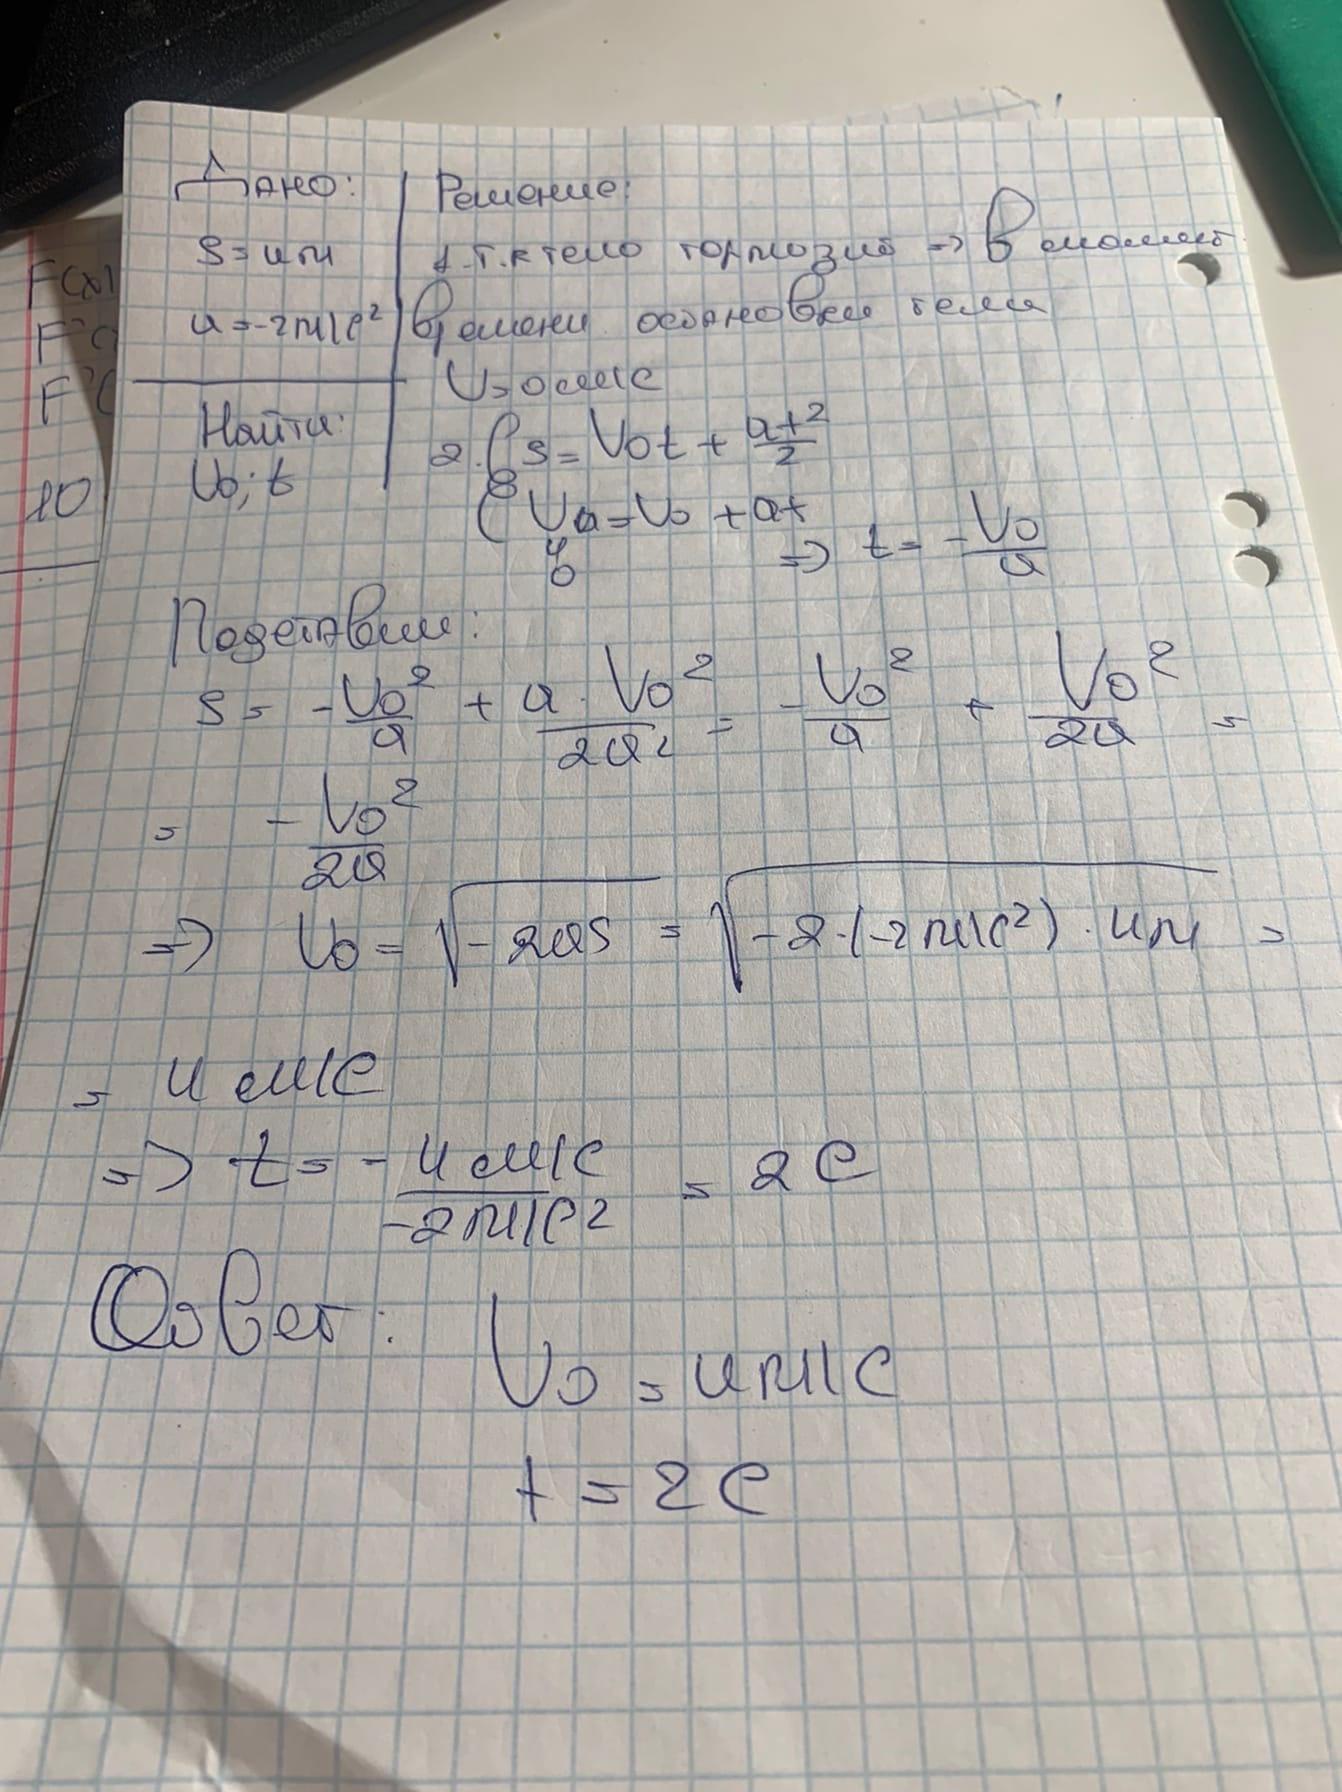 Дано:
S = 4м
a = -2м/с²
Найти:
V₀; t
Решение:
1. Т.к тело тормозит => В момент
времени остановки тела
V = 0 м/с
2. { S = V₀t + at²/2
{ Vк = V₀ + at => t = -V₀/a
0
Подставим:
S = -V₀²/a + a · V₀²/2a² = -V₀²/a + V₀²/2a =
= -V₀²/2a
=> V₀ = √-2aS = √-2·(-2м/с²) · 4м =
= 4 м/с
=> t = - 4 м/с / -2м/с² = 2 с
Ответ: V₀ = 4м/с
t = 2 с
F(x)
F'(
F'(
10